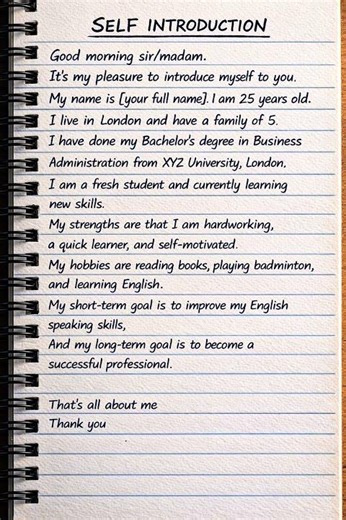 SELF INTRODUCTION
Good morning sir/madam.
It's my pleasure to introduce myself to you.
My name is [your full name]. I am 25 years old.
I live in London and have a family of 5.
I have done my Bachelor's degree in Business
Administration from XYZ University, London.
I am a fresh student and currently learning
new skills.
My strengths are that I am hardworking,
a quick learner, and self-motivated.
My hobbies are reading books, playing badminton,
and learning English.
My short-term goal is to improve my English
speaking skills,
And my long-term goal is to become a
successful professional.
That's all about me
Thank you